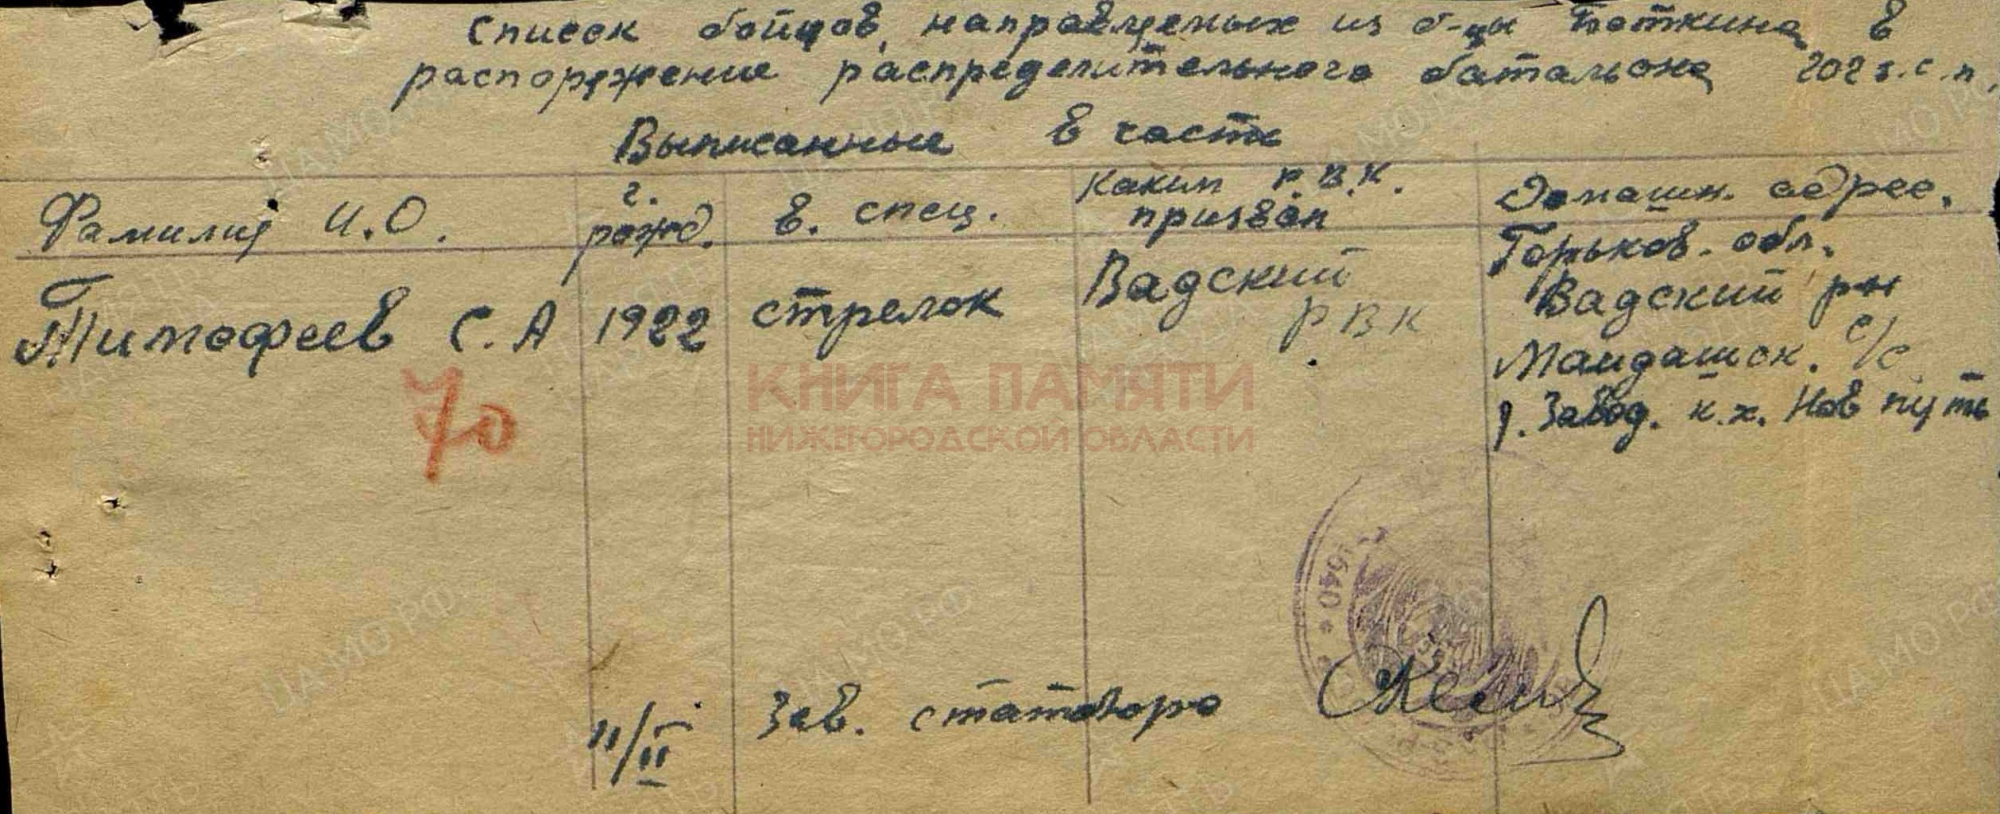 Список бойцов, направляемых из б-цы Боткина в
распоряжение распределительного батальона 202 з.с.п.
Выписанные в часть
Фамилия И.О.
г. рожд.
в. спец.
Каким Р.В.К. призван
Домашн. адрес.
Тимофеев С.А
1922
стрелок
Вадский
РВК
Горьков. обл.
Вадский р-н
Майдашск. с/с
д. Завод. к.х. Нов путь
70
КНИГА ПАМЯТИ
НИЖЕГОРОДСКОЙ ОБЛАСТИ
11/II
Зав. статбюро
ЦА МО РФ